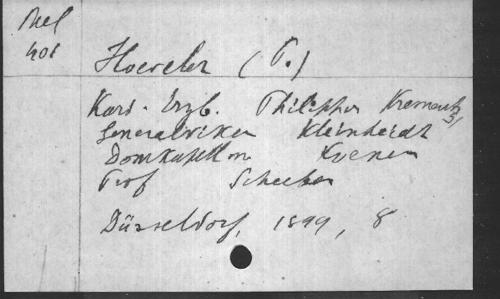 Rel
408
Hoeveler (P.)
Kard. Erzb. Philippus Krementz
Generalvikar Kleinheidt
Domkapell
Prof Scheeben
Düsseldorf, 1899, 8